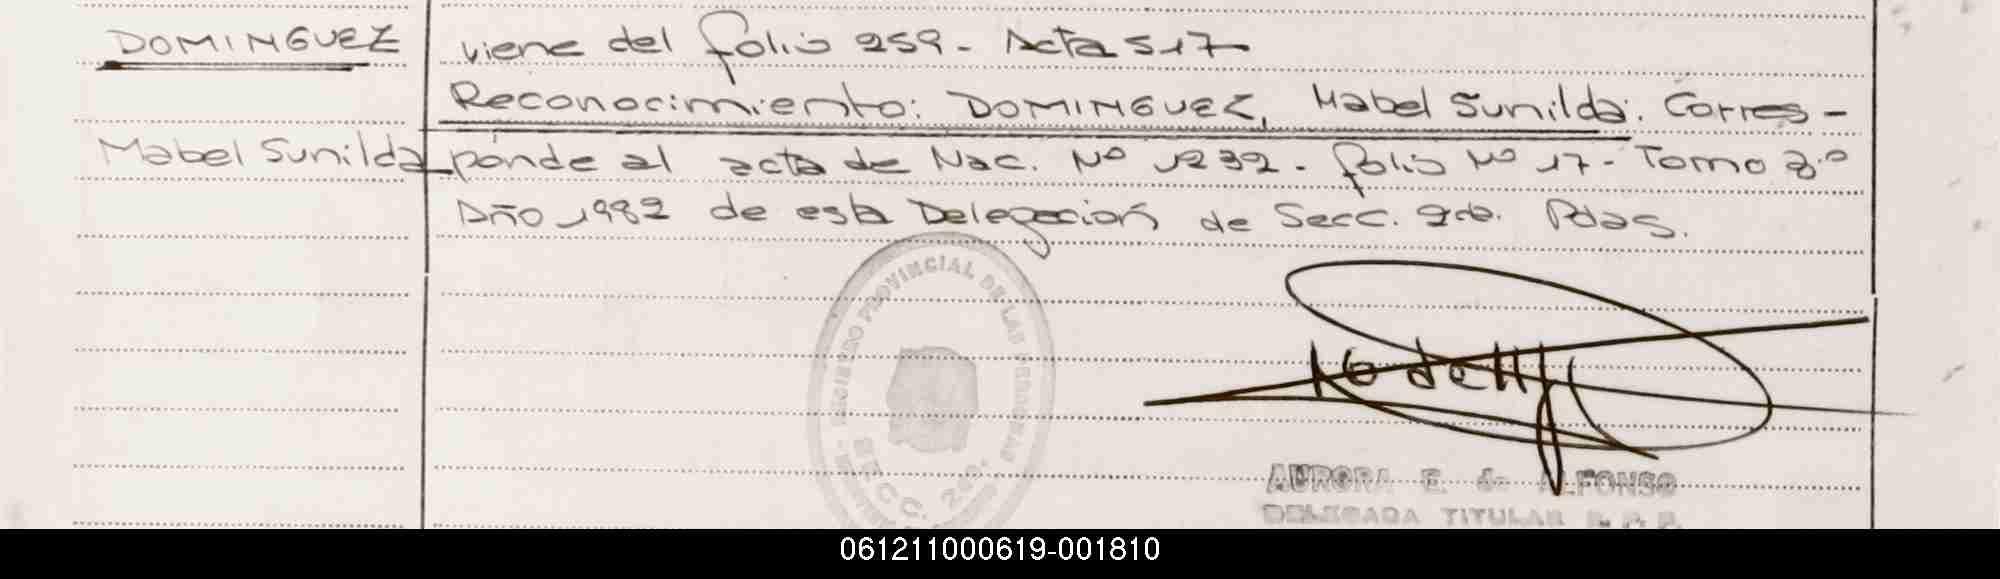 DOMINGUEZ
Mabel Sunilda
viene del folio 259 - Acta 517
Reconocimiento: DOMINGUEZ, Mabel Sunilda. Corres-
ponde al acta de Nac. Nº 1232 - folio Nº 17 - Tomo 3.º
Año 1982 de esta Delegación de Secc. 2da. Pdas.
REGISTRO PROVINCIAL DE LAS PERSONAS
SECC. 2da.
AURORA E. de ALFONSO
DELEGADA TITULAR R. P. P.
061211000619-001810